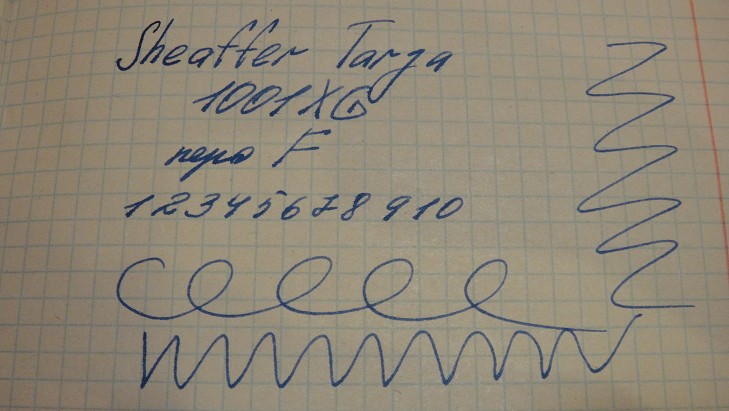 Sheaffer Targa
1001XG
перо F
1 2 3 4 5 6 7 8 9 10